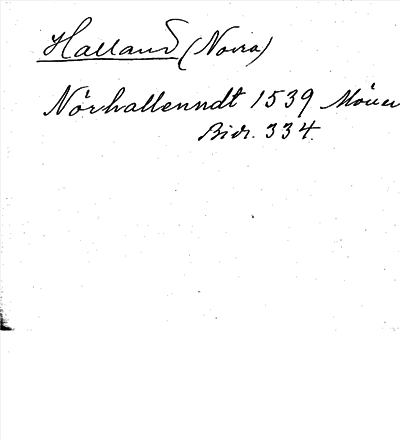 Halland (Norra)
Nörhallenndt 1539 Möller
Bidr. 334.